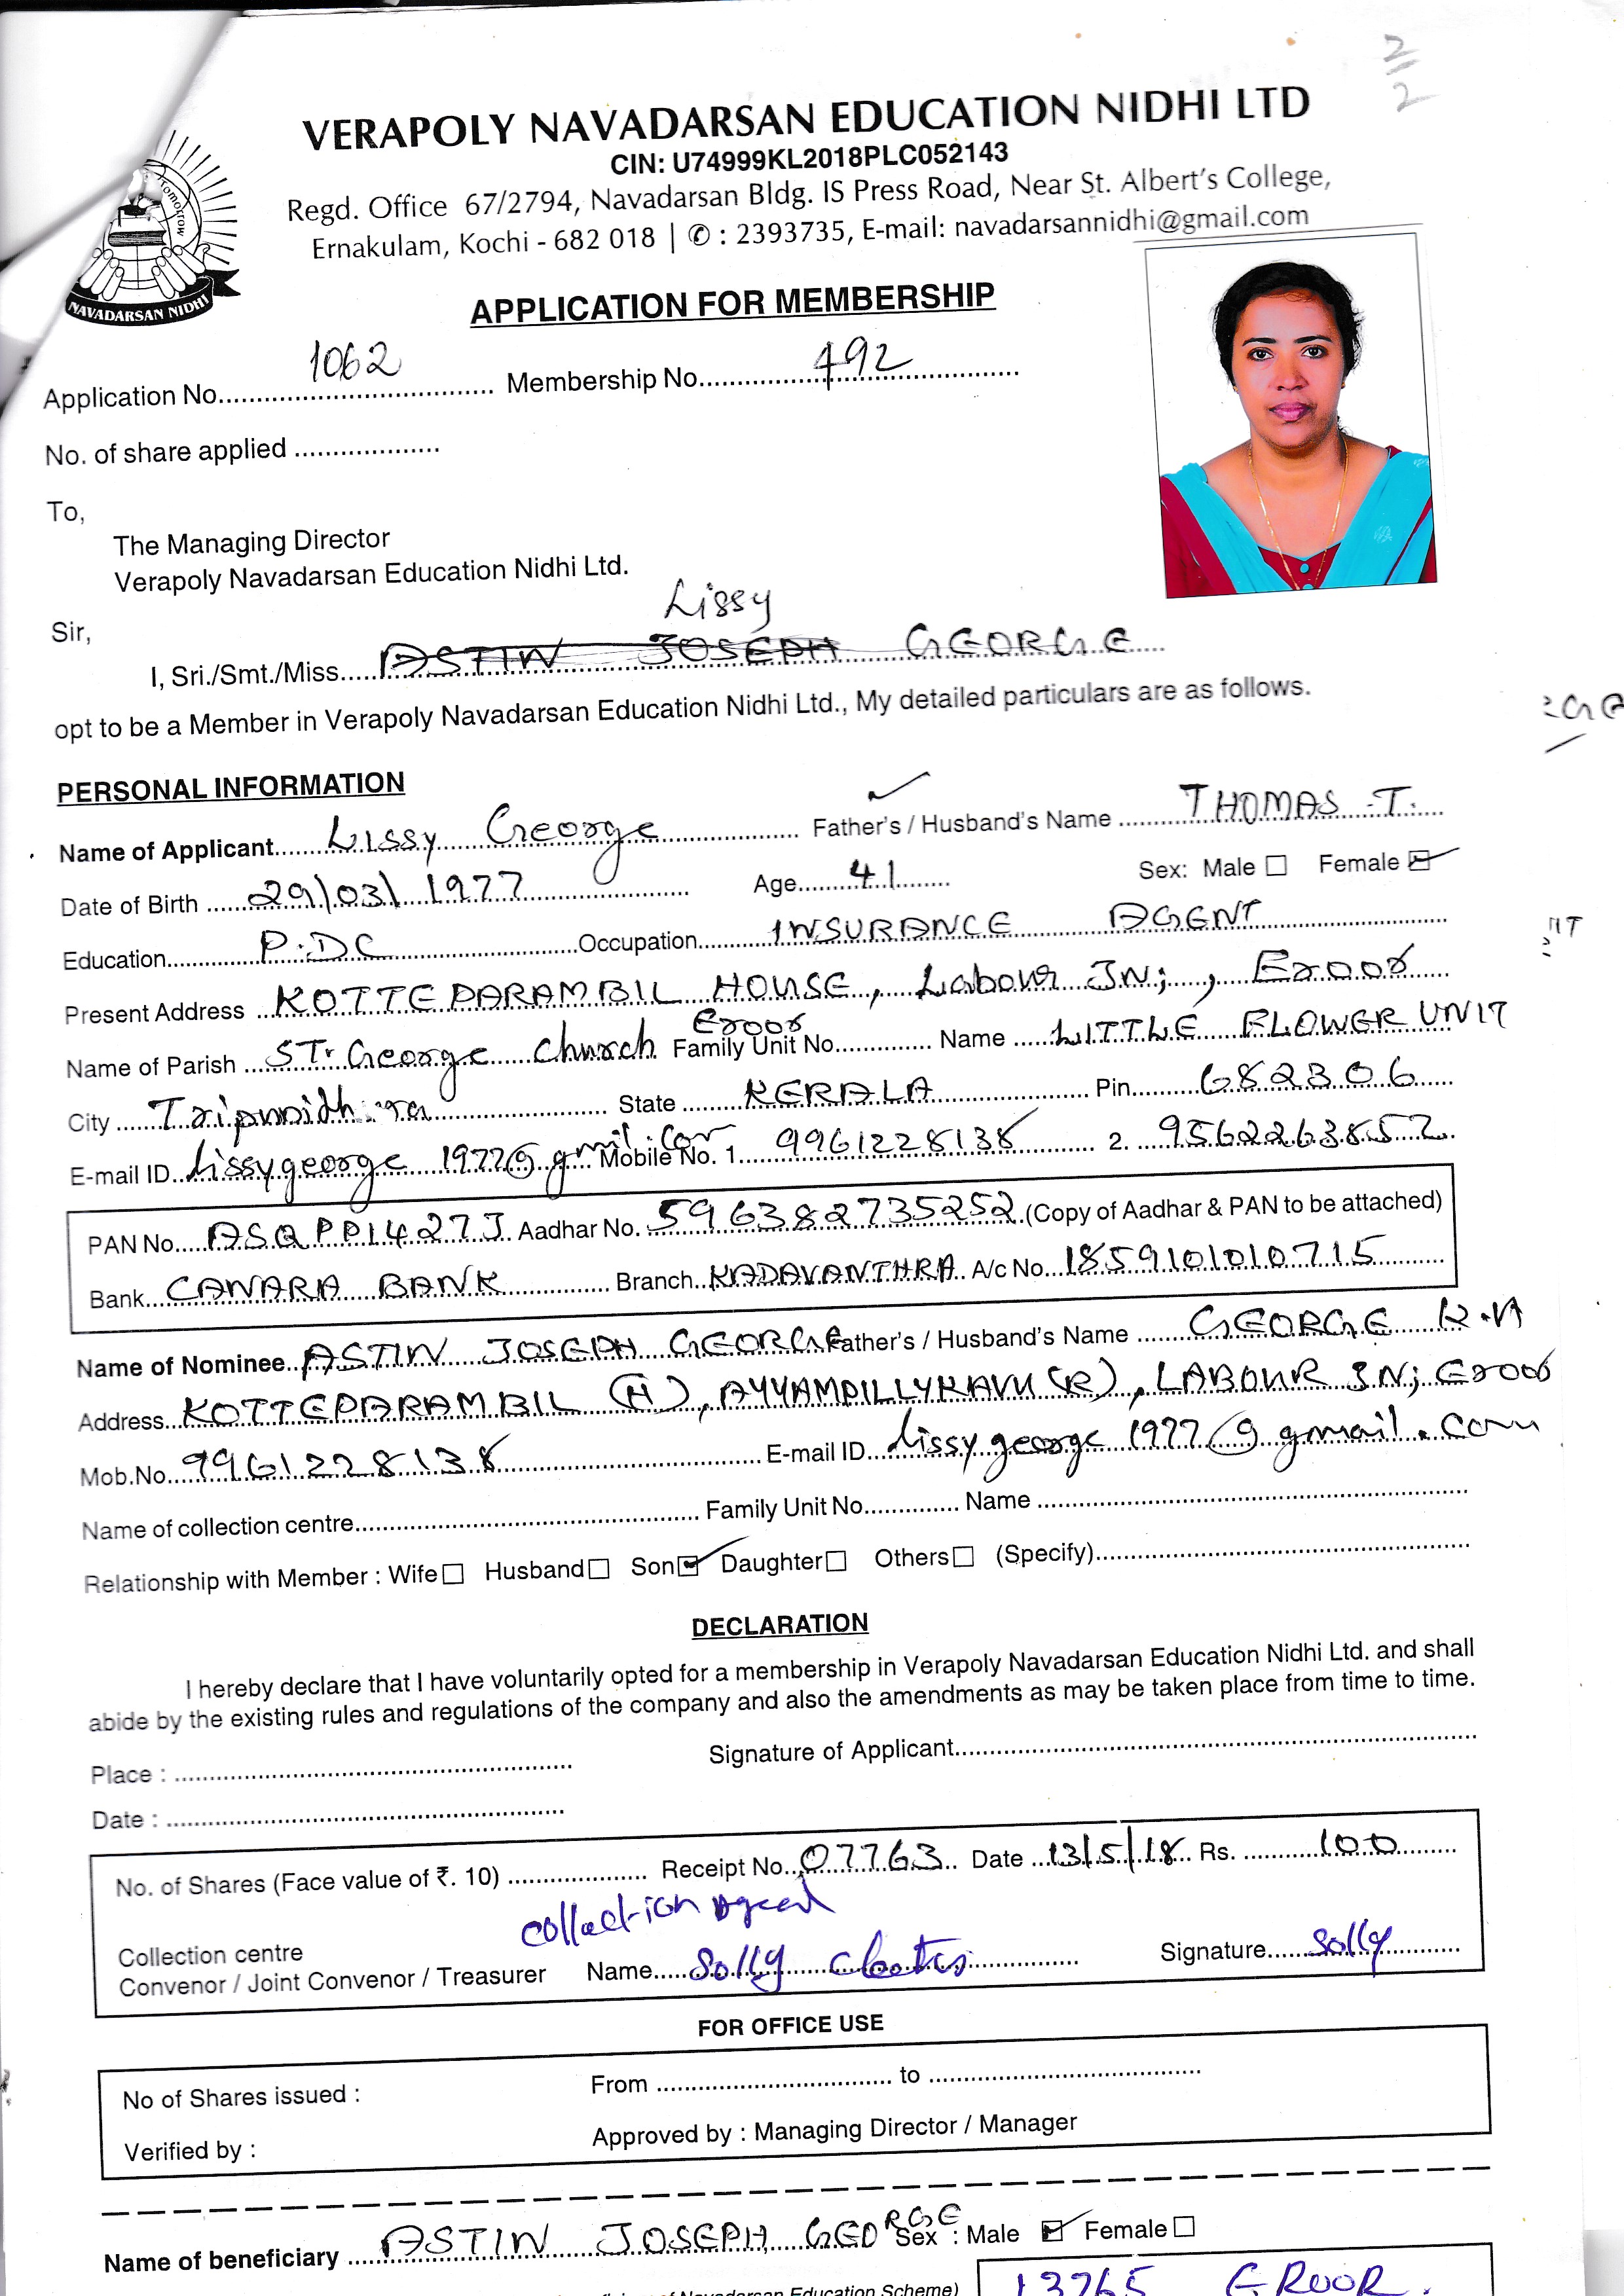 2/2
VERAPOLY NAVADARSAN EDUCATION NIDHI LTD
CIN: U74999KL2018PLC052143
Regd. Office 67/2794, Navadarsan Bldg. IS Press Road, Near St. Albert's College,
Ernakulam, Kochi - 682 018 | ✆ : 2393735, E-mail: navadarsannidhi@gmail.com
Tomorrow
NAVADARSAN NIDHI
APPLICATION FOR MEMBERSHIP
Application No. 1062 Membership No. 492
No. of share applied ...................
To,
The Managing Director
Verapoly Navadarsan Education Nidhi Ltd.
Lissy
Sir,
I, Sri./Smt./Miss. ASTIN JOSEPH GEORGE
opt to be a Member in Verapoly Navadarsan Education Nidhi Ltd., My detailed particulars are as follows.
PERSONAL INFORMATION
Name of Applicant Lissy George Father's / Husband's Name THOMAS .T.
Date of Birth 29/03/1977 Age 41 Sex: Male ☐ Female ☑
Education P.DC Occupation INSURANCE AGENT
Present Address KOTTEPARAMBIL HOUSE, Labour JN;, Eroor
Name of Parish ST. George Church Eroor Family Unit No. Name LITTLE FLOWER UNIT
City Tripunidhura State KERALA Pin 682306
E-mail ID lissygeorge 1977@gmil.com Mobile No. 1. 9961228138 2. 9562263852
PAN No. ASQPP1427J Aadhar No. 596382735252 (Copy of Aadhar & PAN to be attached)
Bank CANARA BANK Branch KADAVANTHRA A/c No. 1859101010715
Name of Nominee ASTIN JOSEPH GEORGE Father's / Husband's Name GEORGE K.A
Address KOTTEPARAMBIL (H), AYYAMPILLYKAVU (R), LABOUR JN; Eroor
Mob.No. 9961228138 E-mail ID lissygeorge 1977@gmail.com
Name of collection centre Family Unit No. Name
Relationship with Member : Wife ☐ Husband ☐ Son ☑ Daughter ☐ Others ☐ (Specify)
DECLARATION
I hereby declare that I have voluntarily opted for a membership in Verapoly Navadarsan Education Nidhi Ltd. and shall
abide by the existing rules and regulations of the company and also the amendments as may be taken place from time to time.
Place : Signature of Applicant
Date :
No. of Shares (Face value of ₹. 10) Receipt No. 07763 Date 13/5/18 Rs. 100
collection
Collection centre
Convenor / Joint Convenor / Treasurer Name Solly Signature Solly
FOR OFFICE USE
No of Shares issued : From to
Verified by : Approved by : Managing Director / Manager
Name of beneficiary ASTIN JOSEPH GEORGE Sex : Male ☑ Female ☐
of Navadarsan Education Scheme) 13765 EROOR.